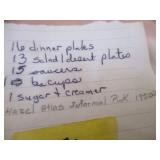 16 dinner plates
13 salad/desert plates
15 saucers
tea cups
1 sugar & creamer
Hazel Atlas Informal Pink 1950s